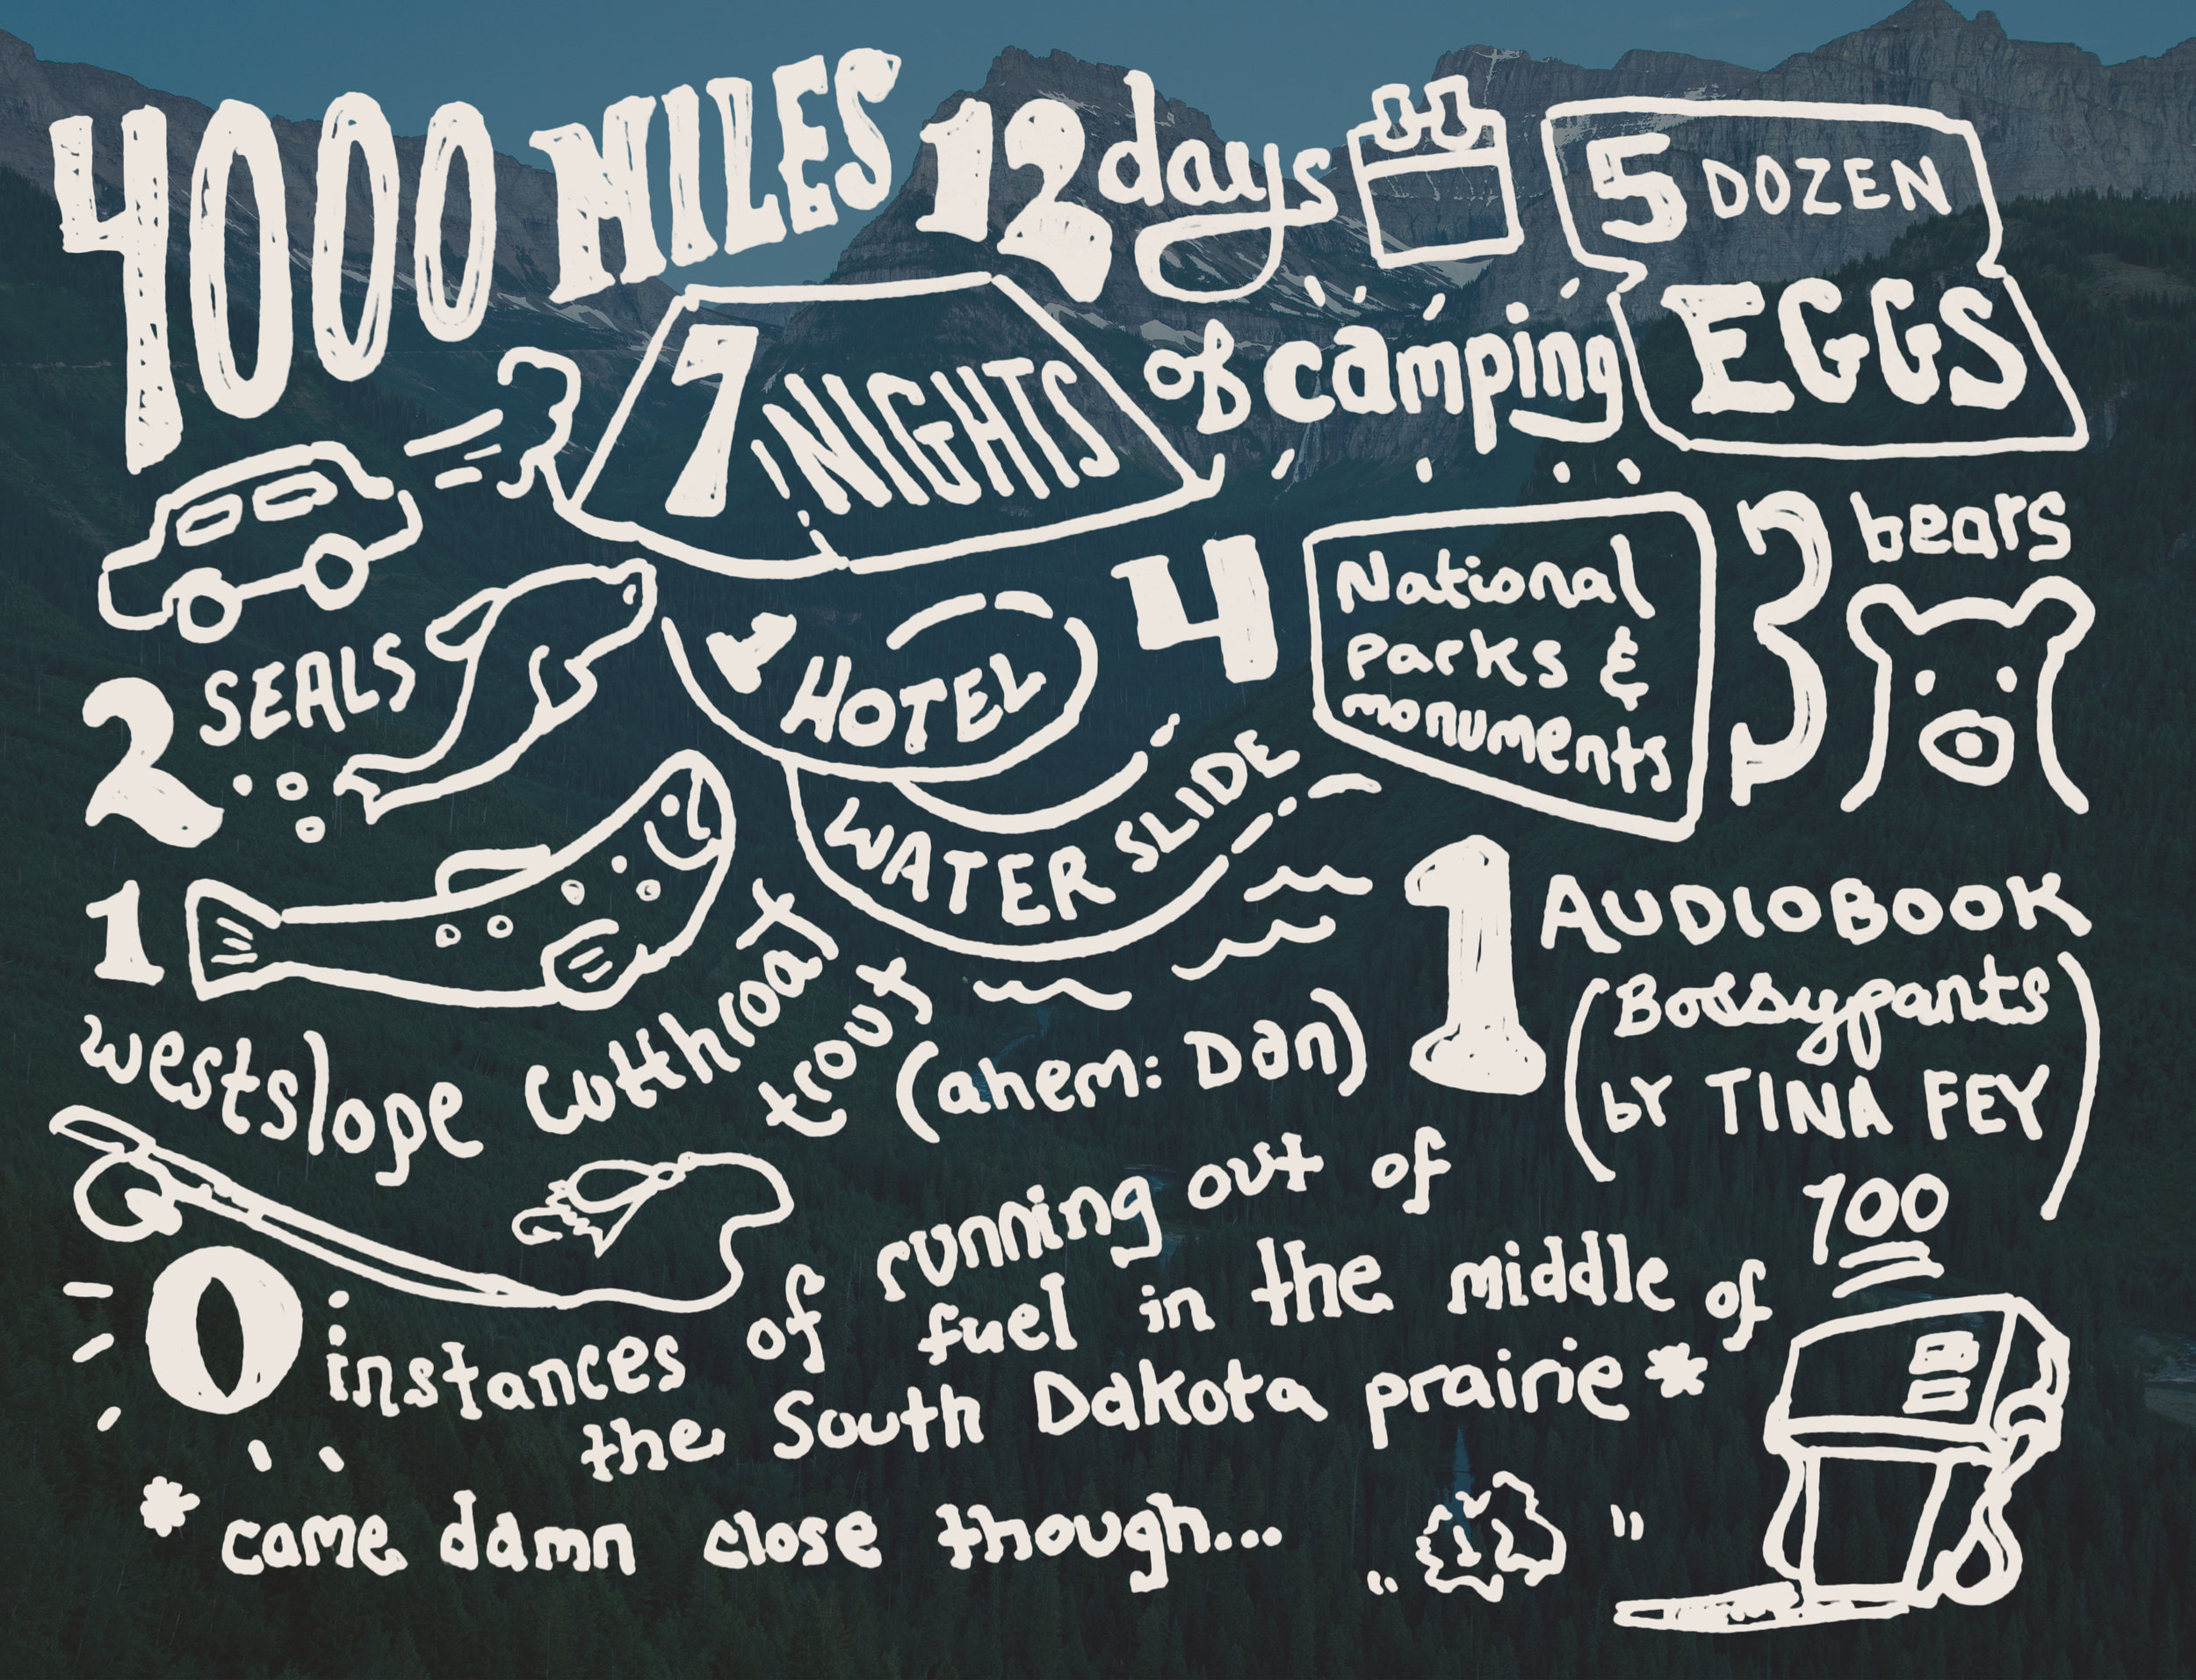 4000 MILES
12 days
5 DOZEN
EGGS
7 NIGHTS
of camping
2 SEALS
1 HOTEL
WATER SLIDE
4 National
Parks &
monuments
3 bears
1
westslope cutthroat
trout (ahem: Dan)
1 AUDIOBOOK
(Bossypants
by TINA FEY)
0 instances of running out of
fuel in the middle of
the South Dakota prairie*
*came damn close though...